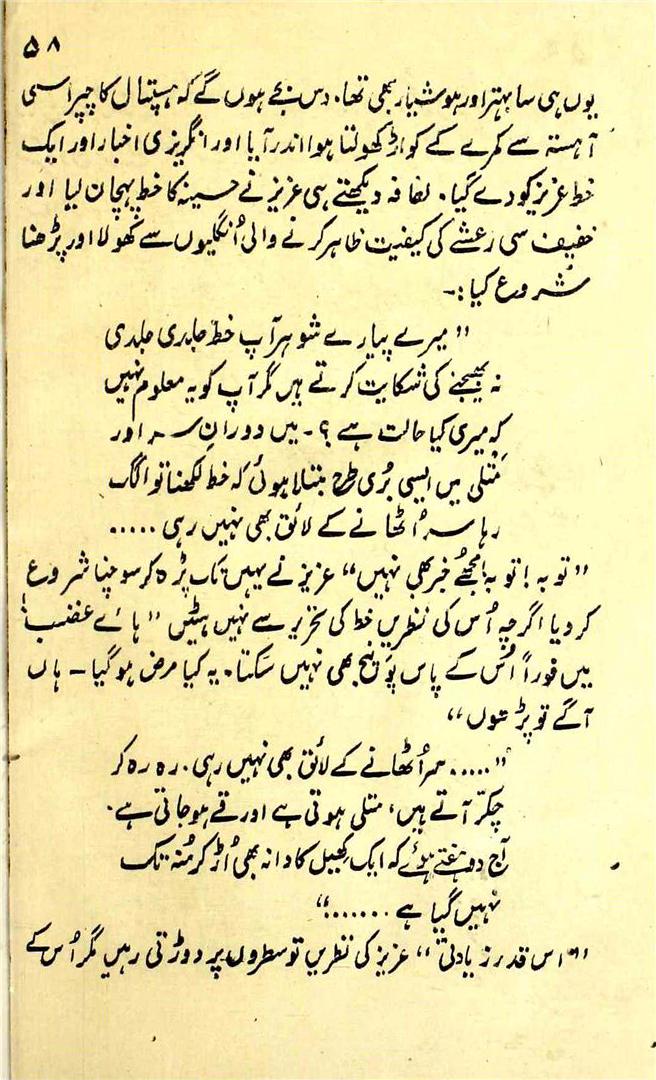 ۵۸
یوں ہی سا بہتر اور ہوشیار بھی تھا۔ دس بجے ہوں گے کہ ہسپتال کا چپراسی
آہستہ سے کمرے کے کواڑ کھولتا ہوا اندر آیا اور انگریزی اخبار اور ایک
خط عزیز کو دے گیا۔ لفافہ دیکھتے ہی عزیز نے حسینہ کا خط پہچان لیا اور
خفیف سی رعشے کی کیفیت ظاہر کرنے والی اُنگلیوں سے کھولا اور پڑھنا
شروع کیا:۔
"میرے پیارے شوہر آپ خط جلدی جلدی
نہ بھیجنے کی شکایت کرتے ہیں مگر آپ کو یہ معلوم نہیں
کہ میری کیا حالت ہے؟۔ میں دورانِ سر اور
متلی میں ایسی بُری طرح مبتلا ہوئی کہ خط لکھنا تو الگ
رہا سر اُٹھانے کے لائق بھی نہیں رہی .....
"توبہ! توبہ! مجھے خبر بھی نہیں" عزیز نے یہیں تک پڑھ کر سوچنا شروع
کر دیا اگرچہ اُس کی نظریں خط کی تحریر سے نہیں ہٹیں "ہائے غضب!
میں فوراً اُس کے پاس پونہچ بھی نہیں سکتا۔ یہ کیا مرض ہو گیا — ہاں
آگے تو پڑھوں"
"..... سر اُٹھانے کے لائق بھی نہیں رہی۔ رہ رہ کر
چکّر آتے ہیں، متلی ہوتی ہے اور قے ہو جاتی ہے۔
آج دو ہفتے ہوئے کہ ایک کھیل کا دانہ بھی اُڑ کر مُنہ تک
نہیں گیا ہے ......."
"اس قدر زیادتی" عزیز کی نظریں تو سطروں پر دوڑتی رہیں مگر اُس کے